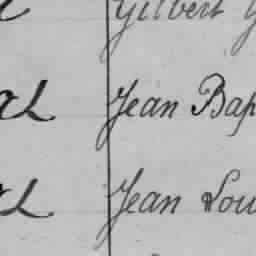 Gilbert G
Jean Bap
Jean Lou